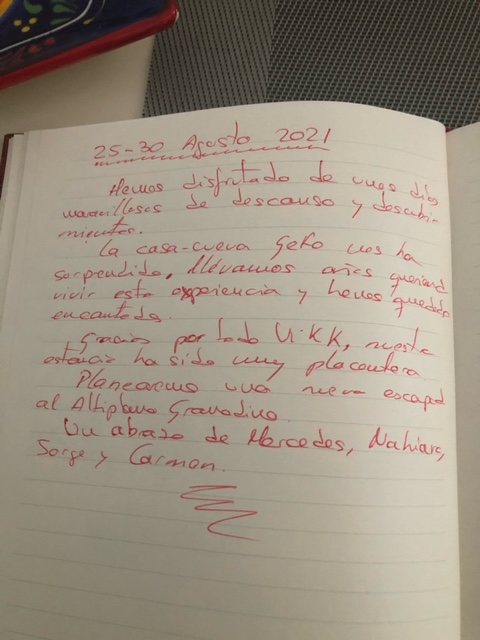 25-30 Agosto 2021
Hemos disfrutado de unos días
maravillosos de descanso y descubri-
mientos.
La casa-cueva Geko nos ha
sorprendido, llévamos años queriend
vivir esta experiencia y hemos quedado
encantados.
Gracias por todo Vikk, nuestra
estancia ha sido muy placentera
Planearemo una nueva escapad
al Altiplano Granadino.
Un abrazo de Mercedes, Nahiara,
Jorge y Carmen.